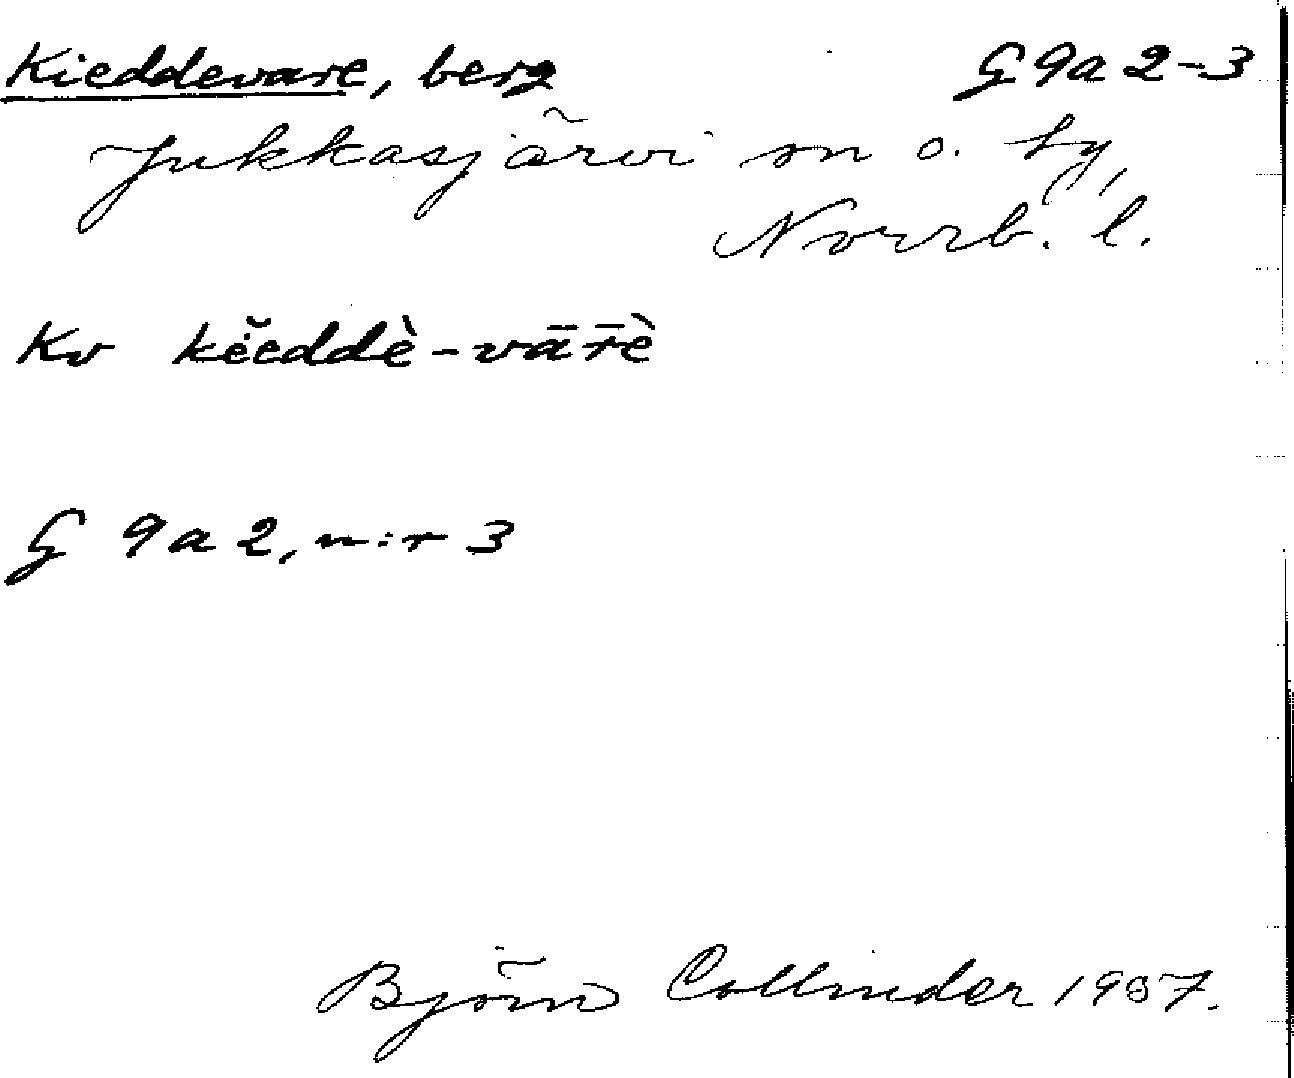 Kieddevare, berg G 9a 2-3
Jukkasjärvi sn o. ty,
Norrb. l.
Kv kĕeddè-vārè
G 9 a 2, n:r 3
Björn Collinder 1957.